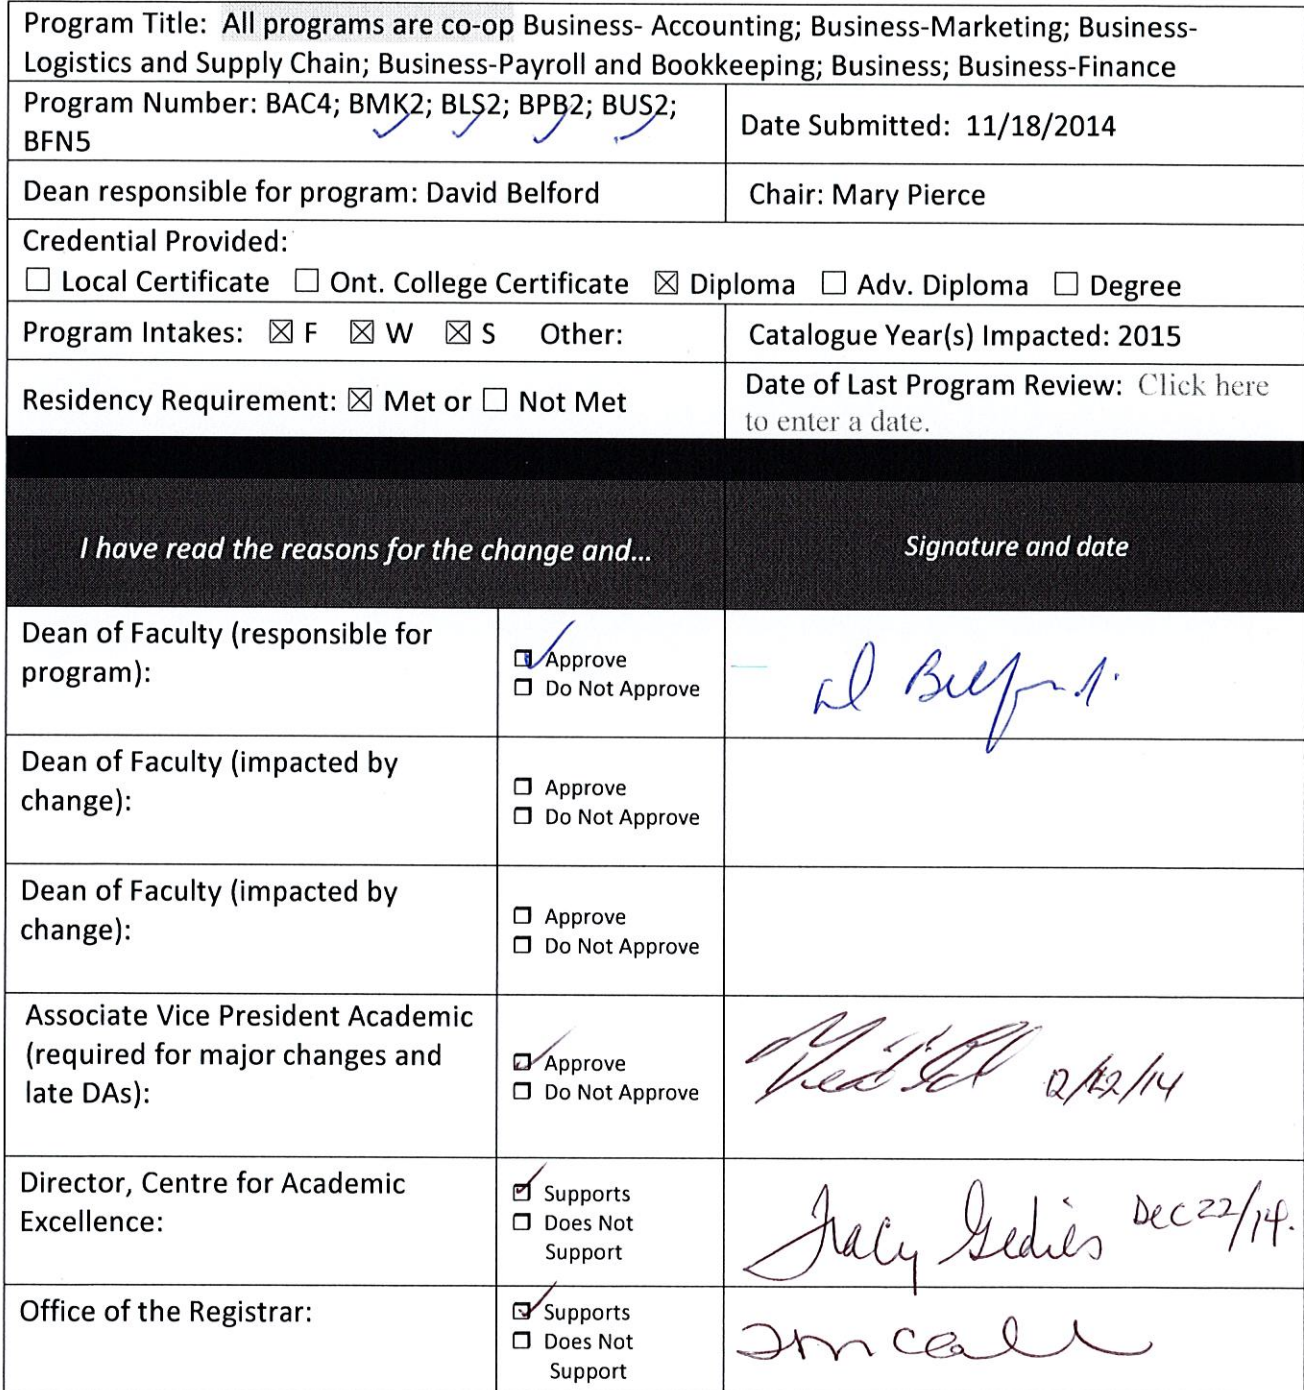 Program Title: All programs are co-op Business- Accounting; Business-Marketing; Business-
Logistics and Supply Chain; Business-Payroll and Bookkeeping; Business; Business-Finance
Program Number: BAC4; BMK2; BLS2; BPB2; BUS2;
BFN5
Date Submitted: 11/18/2014
Dean responsible for program: David Belford
Chair: Mary Pierce
Credential Provided:
☐ Local Certificate ☐ Ont. College Certificate ☒ Diploma ☐ Adv. Diploma ☐ Degree
Program Intakes: ☒ F ☒ W ☒ S Other:
Catalogue Year(s) Impacted: 2015
Residency Requirement: ☒ Met or ☐ Not Met
Date of Last Program Review: Click here
to enter a date.
I have read the reasons for the change and...
Signature and date
Dean of Faculty (responsible for
program):
☑ Approve
☐ Do Not Approve
D Belford
Dean of Faculty (impacted by
change):
☐ Approve
☐ Do Not Approve
Dean of Faculty (impacted by
change):
☐ Approve
☐ Do Not Approve
Associate Vice President Academic
(required for major changes and
late DAs):
☑ Approve
☐ Do Not Approve
Director, Centre for Academic
Excellence:
☑ Supports
☐ Does Not
Support
Tracy Gedies Dec 22/14.
Office of the Registrar:
☑ Supports
☐ Does Not
Support